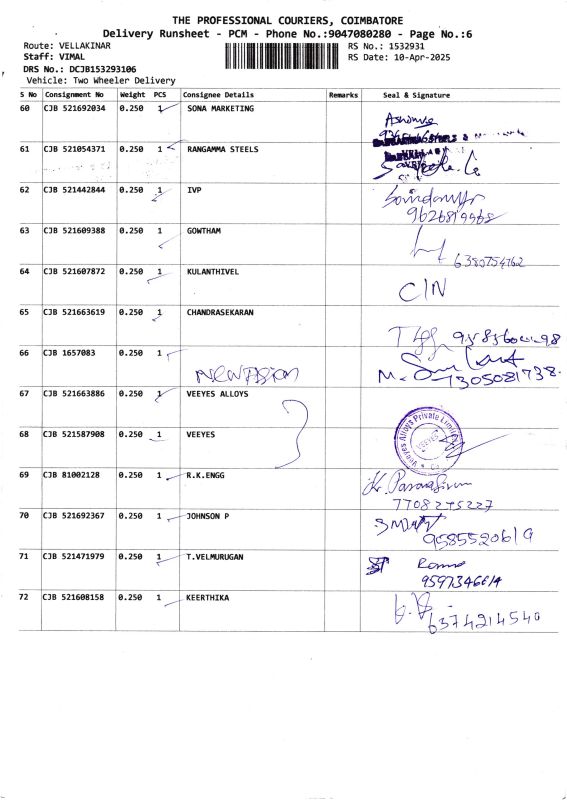 THE PROFESSIONAL COURIERS, COIMBATORE
Delivery Runsheet - PCM - Phone No.:9047080280 - Page No.:6
Route: VELLAKINAR RS No.: 1532931
Staff: VIMAL RS Date: 10-Apr-2025
DRS No.: DCJB153293106
Vehicle: Two Wheeler Delivery
S No Consignment No Weight PCS Consignee Details Remarks Seal & Signature
60 CJB 521692034 0.250 1 SONA MARKETING
61 CJB 521054371 0.250 1 RANGAMMA STEELS
62 CJB 521442844 0.250 1 IVP
9626819968
63 CJB 521609388 0.250 1 GOWTHAM
6380754762
64 CJB 521607872 0.250 1 KULANTHIVEL
C/N
65 CJB 521663619 0.250 1 CHANDRASEKARAN
66 CJB 1657083 0.250 1
New Vision
7305081738
67 CJB 521663886 0.250 1 VEEYES ALLOYS
68 CJB 521587908 0.250 1 VEEYES
Veeyes Alloys Private Limited
69 CJB 81002128 0.250 1 R.K.ENGG
7708275227
70 CJB 521692367 0.250 1 JOHNSON P
9585520619
71 CJB 521471979 0.250 1 T.VELMURUGAN
72 CJB 521608158 0.250 1 KEERTHIKA
6374214540